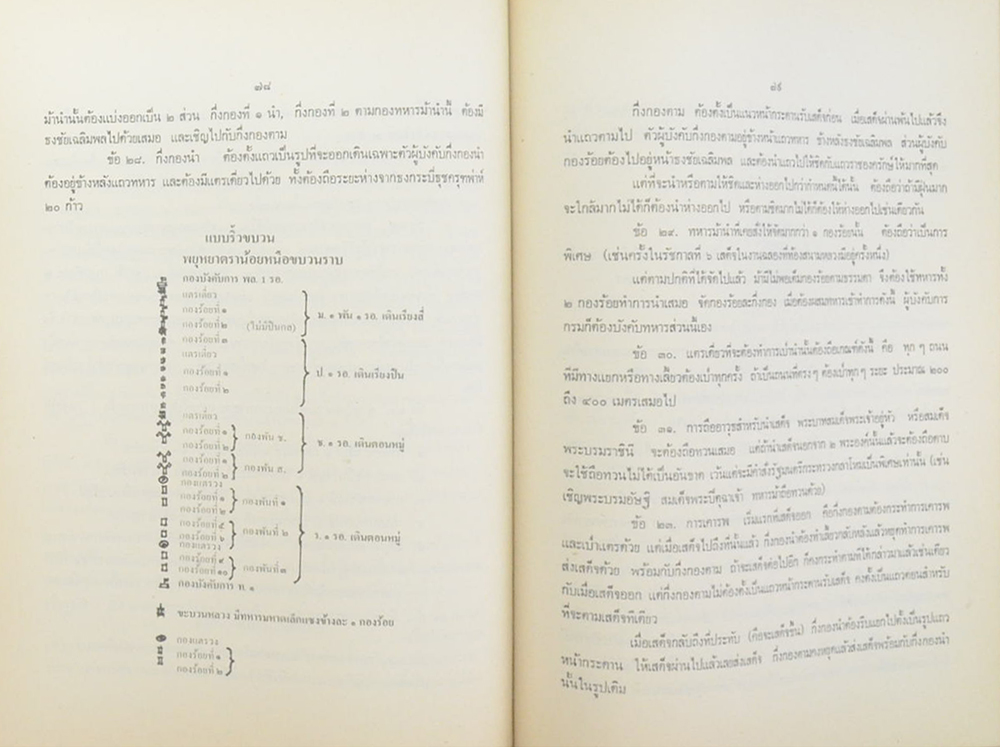 ๗๘
ม้านำนั้นต้องแบ่งออกเป็น ๒ ส่วน กึ่งกองที่ ๑ นำ, กึ่งกองที่ ๒ ตามกองทหารม้านำนี้ ต้องมี
ธงชัยเฉลิมพลไปด้วยเสมอ และเชิญไปกับกึ่งกองตาม
ข้อ ๒๘. กึ่งกองนำ ต้องตั้งแถวเป็นรูปที่จะออกเดินเฉพาะตัวผู้บังคับกึ่งกองนำ
ต้องอยู่ข้างหลังแถวทหาร และต้องมีแตรเดี่ยวไปด้วย ทั้งต้องถือระยะห่างจากธงกระบี่ธุชครุฑพ่าห์
๒๐ ก้าว
แบบริ้วขบวน
พยุหยาตราน้อยหนือขบวนราบ
กองบังคับการ พล. 1 รอ.
แตรเดี่ยว
กองร้อยที่ ๑
กองร้อยที่ ๒ (ไม่มีปืนกล)
ม. ๑ พัน ๑ รอ. เดินเรียงสี่
กองร้อยที่ ๓
แตรเดี่ยว
กองร้อยที่ ๑
ป. ๑ รอ. เดินเรียงปืน
กองร้อยที่ ๒
แตรเดี่ยว
กองร้อยที่ ๑
กองร้อยที่ ๒
กองพัน ช.
ช. ๑ รอ. เดินตอนหมู่
กองร้อยที่ ๑
กองร้อยที่ ๒
กองพัน ส.
กองแตรวง
กองร้อยที่ ๑
กองร้อยที่ ๒
กองพันที่ ๑
กองร้อยที่ ๕
กองร้อยที่ ๖
กองพันที่ ๒
ร. ๑ รอ. เดินตอนหมู่
กองแตรวง
กองร้อยที่ ๙
กองร้อยที่ ๑๐
กองพันที่ ๓
กองบังคับการ ท. ๑
ขะบวนหลวง มีทหารมหาดเล็กแซงข้างละ ๑ กองร้อย
กองแตรวง
กองร้อยที่ ๑
กองร้อยที่ ๒
๗๙
กึ่งกองตาม ต้องตั้งเป็นแนวหน้ากระดานรับเสด็จก่อน เมื่อเสด็จผ่านพ้นไปแล้วจึง
นำแถวตามไป ตัวผู้บังคับกึ่งกองตามอยู่ข้างหน้าแถวทหาร ข้างหลังธงชัยเฉลิมพล ส่วนผู้บังคับ
กองร้อยต้องไปอยู่หน้าธงชัยเฉลิมพล และต้องนำแถวไปให้ชิดกับแถวราชองครักษ์ให้มากที่สุด
แต่ที่จะนำหรือตามให้ชิดและห่างออกไปกว่ากำหนดได้นั้น ต้องถือว่าถ้ามีฝุ่นมาก
จะใกล้มากไม่ได้ก็ต้องนำห่างออกไป หรือตามชิดมากไม่ได้ก็ต้องให้ห่างออกไปเช่นเดียวกัน
ข้อ ๒๙. ทหารม้านำที่เคยสั่งให้จัดมากกว่า ๑ กองร้อยนั้น ต้องถือว่าเป็นการ
พิเศษ (เช่นครั้งในรัชกาลที่ ๖ เสด็จในงานฉลองที่ท้องสนามหลวงมีอยู่ครั้งหนึ่ง)
แต่ตามปกติที่ได้จัดไปแล้ว ม้ามีไม่พอเต็มกองร้อยตามธรรมดา จึงต้องใช้ทหารทั้ง
๒ กองร้อยทำการนำเสมอ จัดกองร้อยละกึ่งกอง เมื่อต้องผสมทหารเข้าทำการดังนี้ ผู้บังคับการ
กรมก็ต้องบังคับทหารส่วนนี้เอง
ข้อ ๓๐. แตรเดี่ยวที่จะต้องทำการเป่านำนั้นต้องถือเกณฑ์ดังนี้ คือ ทุก ๆ ถนน
ที่มีทางแยกหรือทางเลี้ยวต้องเป่าทุกครั้ง ถ้าเป็นถนนที่ตรง ๆ ต้องเป่าทุก ๆ ระยะ ประมาณ ๒๐๐
ถึง ๔๐๐ เมตรเสมอไป
ข้อ ๓๑. การถืออาวุธสำหรับนำเสด็จ พระบาทสมเด็จพระเจ้าอยู่หัว หรือสมเด็จ
พระบรมราชินี จะต้องถือทวนเสมอ แต่ถ้านำเสด็จนอกจาก ๒ พระองค์นั้นแล้วจะต้องถือดาบ
จะใช้ถือทวนไม่ได้เป็นอันขาด เว้นแต่จะมีคำสั่งรัฐมนตรีกระทรวงกลาโหมเป็นพิเศษเท่านั้น (เช่น
เชิญพระบรมอัษฐิ สมเด็จพระปิตุฉาเจ้า ทหารม้าถือทวนด้วย)
ข้อ ๒๓. การเคารพ เริ่มแรกที่เสด็จออก คือกึ่งกองตามต้องกระทำการเคารพ
และเป่าแตรด้วย แต่เมื่อเสด็จไปถึงที่นั้นแล้ว กึ่งกองนำต้องทำเลี้ยวกลับหลังแล้วหยุดทำการเคารพ
ส่งเสด็จด้วย พร้อมกับกึ่งกองตาม ถ้าจะเสด็จต่อไปอีก ก็คงกระทำตามที่ได้กล่าวมาแล้วเช่นเดียว
กับเมื่อเสด็จออก แต่กึ่งกองตามไม่ต้องตั้งเป็นแถวหน้ากระดานรับเสด็จ คงตั้งเป็นแถวตอนสำหรับ
ที่จะตามเสด็จทีเดียว
เมื่อเสด็จกลับถึงที่ประทับ (คือจะเสด็จขึ้น) กึ่งกองนำต้องรีบแยกไปตั้งเป็นรูปแถว
หน้ากระดาน ให้เสด็จผ่านไปแล้วเลยส่งเสด็จ กึ่งกองตามคงหยุดแล้วส่งเสด็จพร้อมกับกึ่งกองนำ
นั้นในรูปเดิม